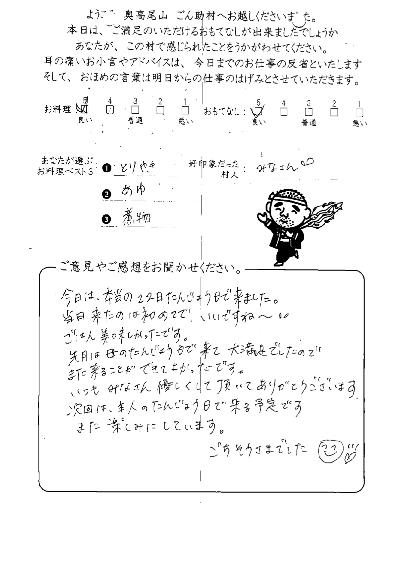 ようこそ 奥高尾山 ごん助村へお越しくださいました。
本日は、ご満足のいただけるおもてなしが出来ましたでしょうか
あなたが、この村で感じられたことをうかがわせてください。
耳の痛いお小言やアドバイスは、今日までのお仕事の反省といたします
そして、おほめの言葉は明日からの仕事のはげみとさせていただきます。
お料理 5 4 3 2 1 おもてなし: 5 4 3 2 1
良い 普通 悪い 良い 普通 悪い
あなたが選ぶ お料理ベスト3 ❶ とりやき 好印象だった 村人 みなさん
❷ あゆ
❸ 煮物
ご意見やご感想をお聞かせください。
今日は、本当の22日たんじょう日で来ました。
当日来たのは初めてで いいですね〜
ごはん美味しかったです。
先月は母のたんじょう日で来て 大満足でしたので
また来ることができてよかったです。
いつも みなさん 優しくして頂いてありがとうございます
次回は、本人のたんじょう日で来る予定です
また 楽しみにしています。
ごちそうさまでした